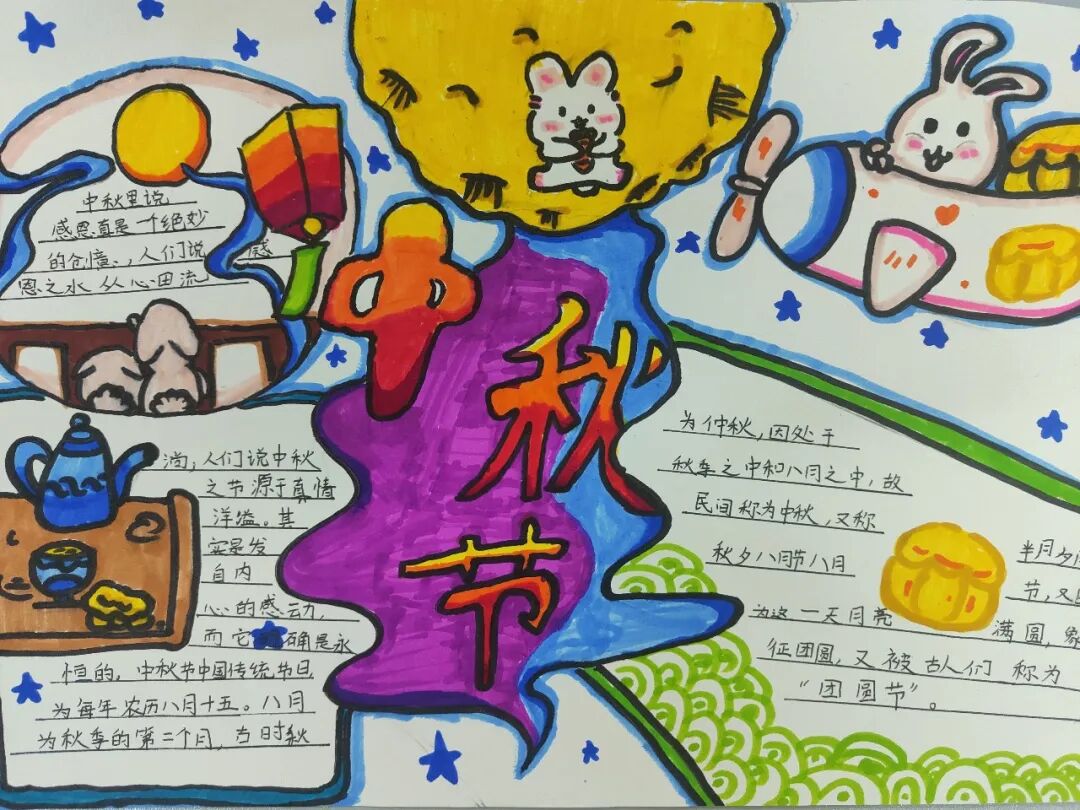 中秋节
中秋里说
感恩真是一个绝妙
的创意，人们说 感
恩之水从心田流
淌，人们说中秋
之节源于真情
洋溢。其
实是发
自内
心的感动，
而它 确是永
恒的，中秋节中国传统节日
为每年农历八月十五。八月
为秋季的第二个月，古时秋
为仲秋，因处于
秋季之中和八月之中，故
民间称为中秋，又称
秋夕八月节八月 半月夕
节，又
为这一天月亮 满圆，象
征团圆，又被古人们称为
“团圆节”。